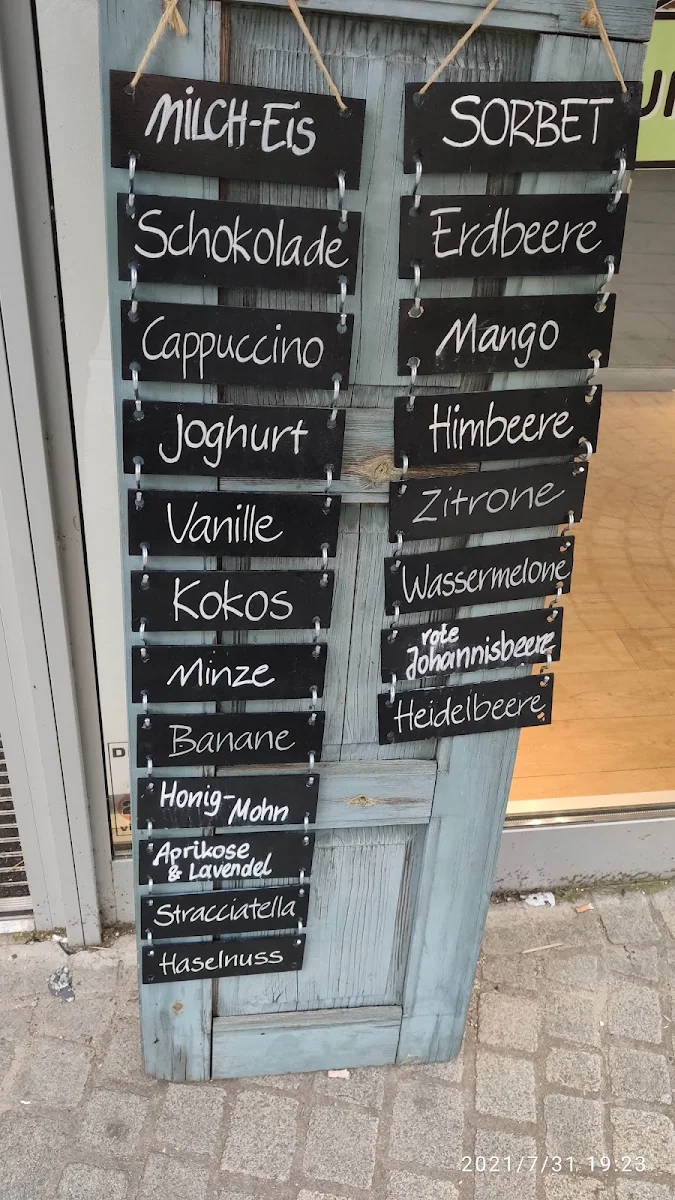 MILCH-Eis
Schokolade
Cappuccino
Joghurt
Vanille
Kokos
Minze
Banane
Honig-Mohn
Aprikose
& Lavendel
Stracciatella
Haselnuss
SORBET
Erdbeere
Mango
Himbeere
Zitrone
Wassermelone
rote
Johannisbeere
Heidelbeere
2021/7/31 19:23